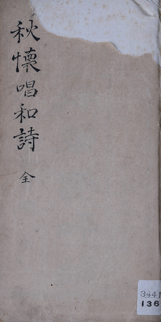 秋懷唱和詩
全
136